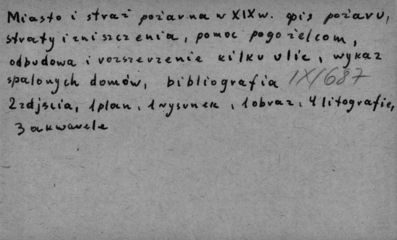 Miasto i straż pożarna w XIX w. opis pożaru,
straty i zniszczenia, pomoc pogorzelcom,
odbudowa i rozszerzenie kilku ulic, wykaz
spalonych domów, bibliografia IX/687
2 zdjścia, 1 plan, 1 rysunek, 1 obraz, 4 litografie,
3 akwarele